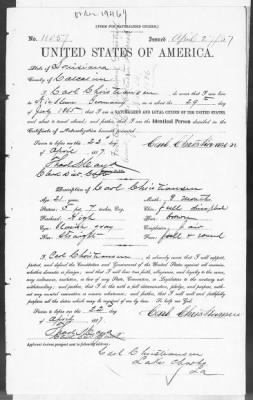 [FORM FOR NATURALIZED CITIZEN.]
No. 11057 Issued April 27/87
UNITED STATES OF AMERICA.
State of Louisiana
County of Calcasieu
I, Carl Christiansen, do swear that I was born
in Germany, on or about the 29th day
of July 1865; that I am a NATURALIZED AND LOYAL CITIZEN OF THE UNITED STATES,
and about to travel abroad; and further, that I am the Identical Person described in the
Certificate of Naturalization herewith presented.
Sworn to before me this 22d day
of April 1887
Carl Christiansen
Description of Carl Christiansen
Age: 21 years
Stature: 5 ft 7 inches, Eng.
Forehead: High
Eyes: gray
Nose: Straight
Mouth:
Chin: full dimpled
Hair: brown
Complexion: fair
Face: full & round
I, Carl Christiansen, do solemnly swear that I will support,
protect, and defend the Constitution and Government of the United States against all enemies,
whether domestic or foreign; and that I will bear true faith, allegiance, and loyalty to the same,
any ordinance, resolution, or law of any State, Convention, or Legislature to the contrary notwithstanding;
and further, that I do this with a full determination, pledge, and purpose, without
any mental reservation or evasion whatsoever; and further, that I will well and faithfully
perform all the duties which may be required of me by law. So help me God.
Sworn to before me this 22 day
of April 1887
Carl Christiansen
Applicant desires passport sent to following address:
Carl Christiansen
Lake Charles
La